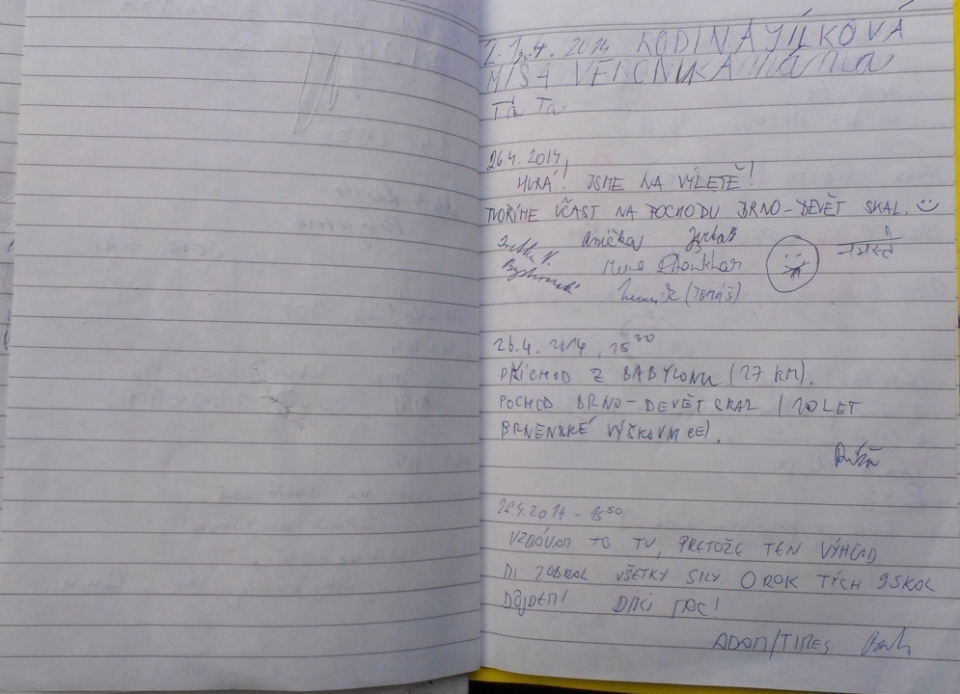 2. 1.4. 2014 RODINA JÍLKOVÁ
MÍŠA VERONIKA máma
Tá Ta
26.4. 2014
HURÁ! JSME NA VÝLETĚ!
TVOŘÍME ÚČAST NA POCHODU BRNO-DEVĚT SKAL. :)
Anička
(TOMÁŠ)
26.4. 2014, 15 30
PŘÍCHOD Z BABYLONU (27 KM).
POCHOD BRNO-DEVĚT SKAL (20 LET
BRNĚNSKÉ VÝŠKOVNICE).
26.4.2014 - 15 50
VZDÁVAM TO TU, PRETOŽE TEN VÝHĽAD
MI ZOBRAL VŠETKY SILY. O ROK TÝCH 9 SKAL
DÔJDEM! DIKI MOC!
ADAM/TIMES